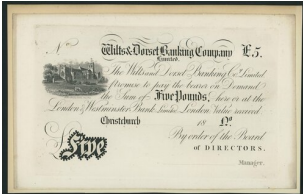 No
Wilts & Dorset Banking Company £5.
Limited.
The Wilts and Dorset Banking Co. Limited
promise to pay the bearer on Demand
the Sum of Five Pounds, here or at the
London & Westminster Bank Limited, London. Value received
Christchurch 18 No
By order of the Board
of DIRECTORS.
Five
Manager.